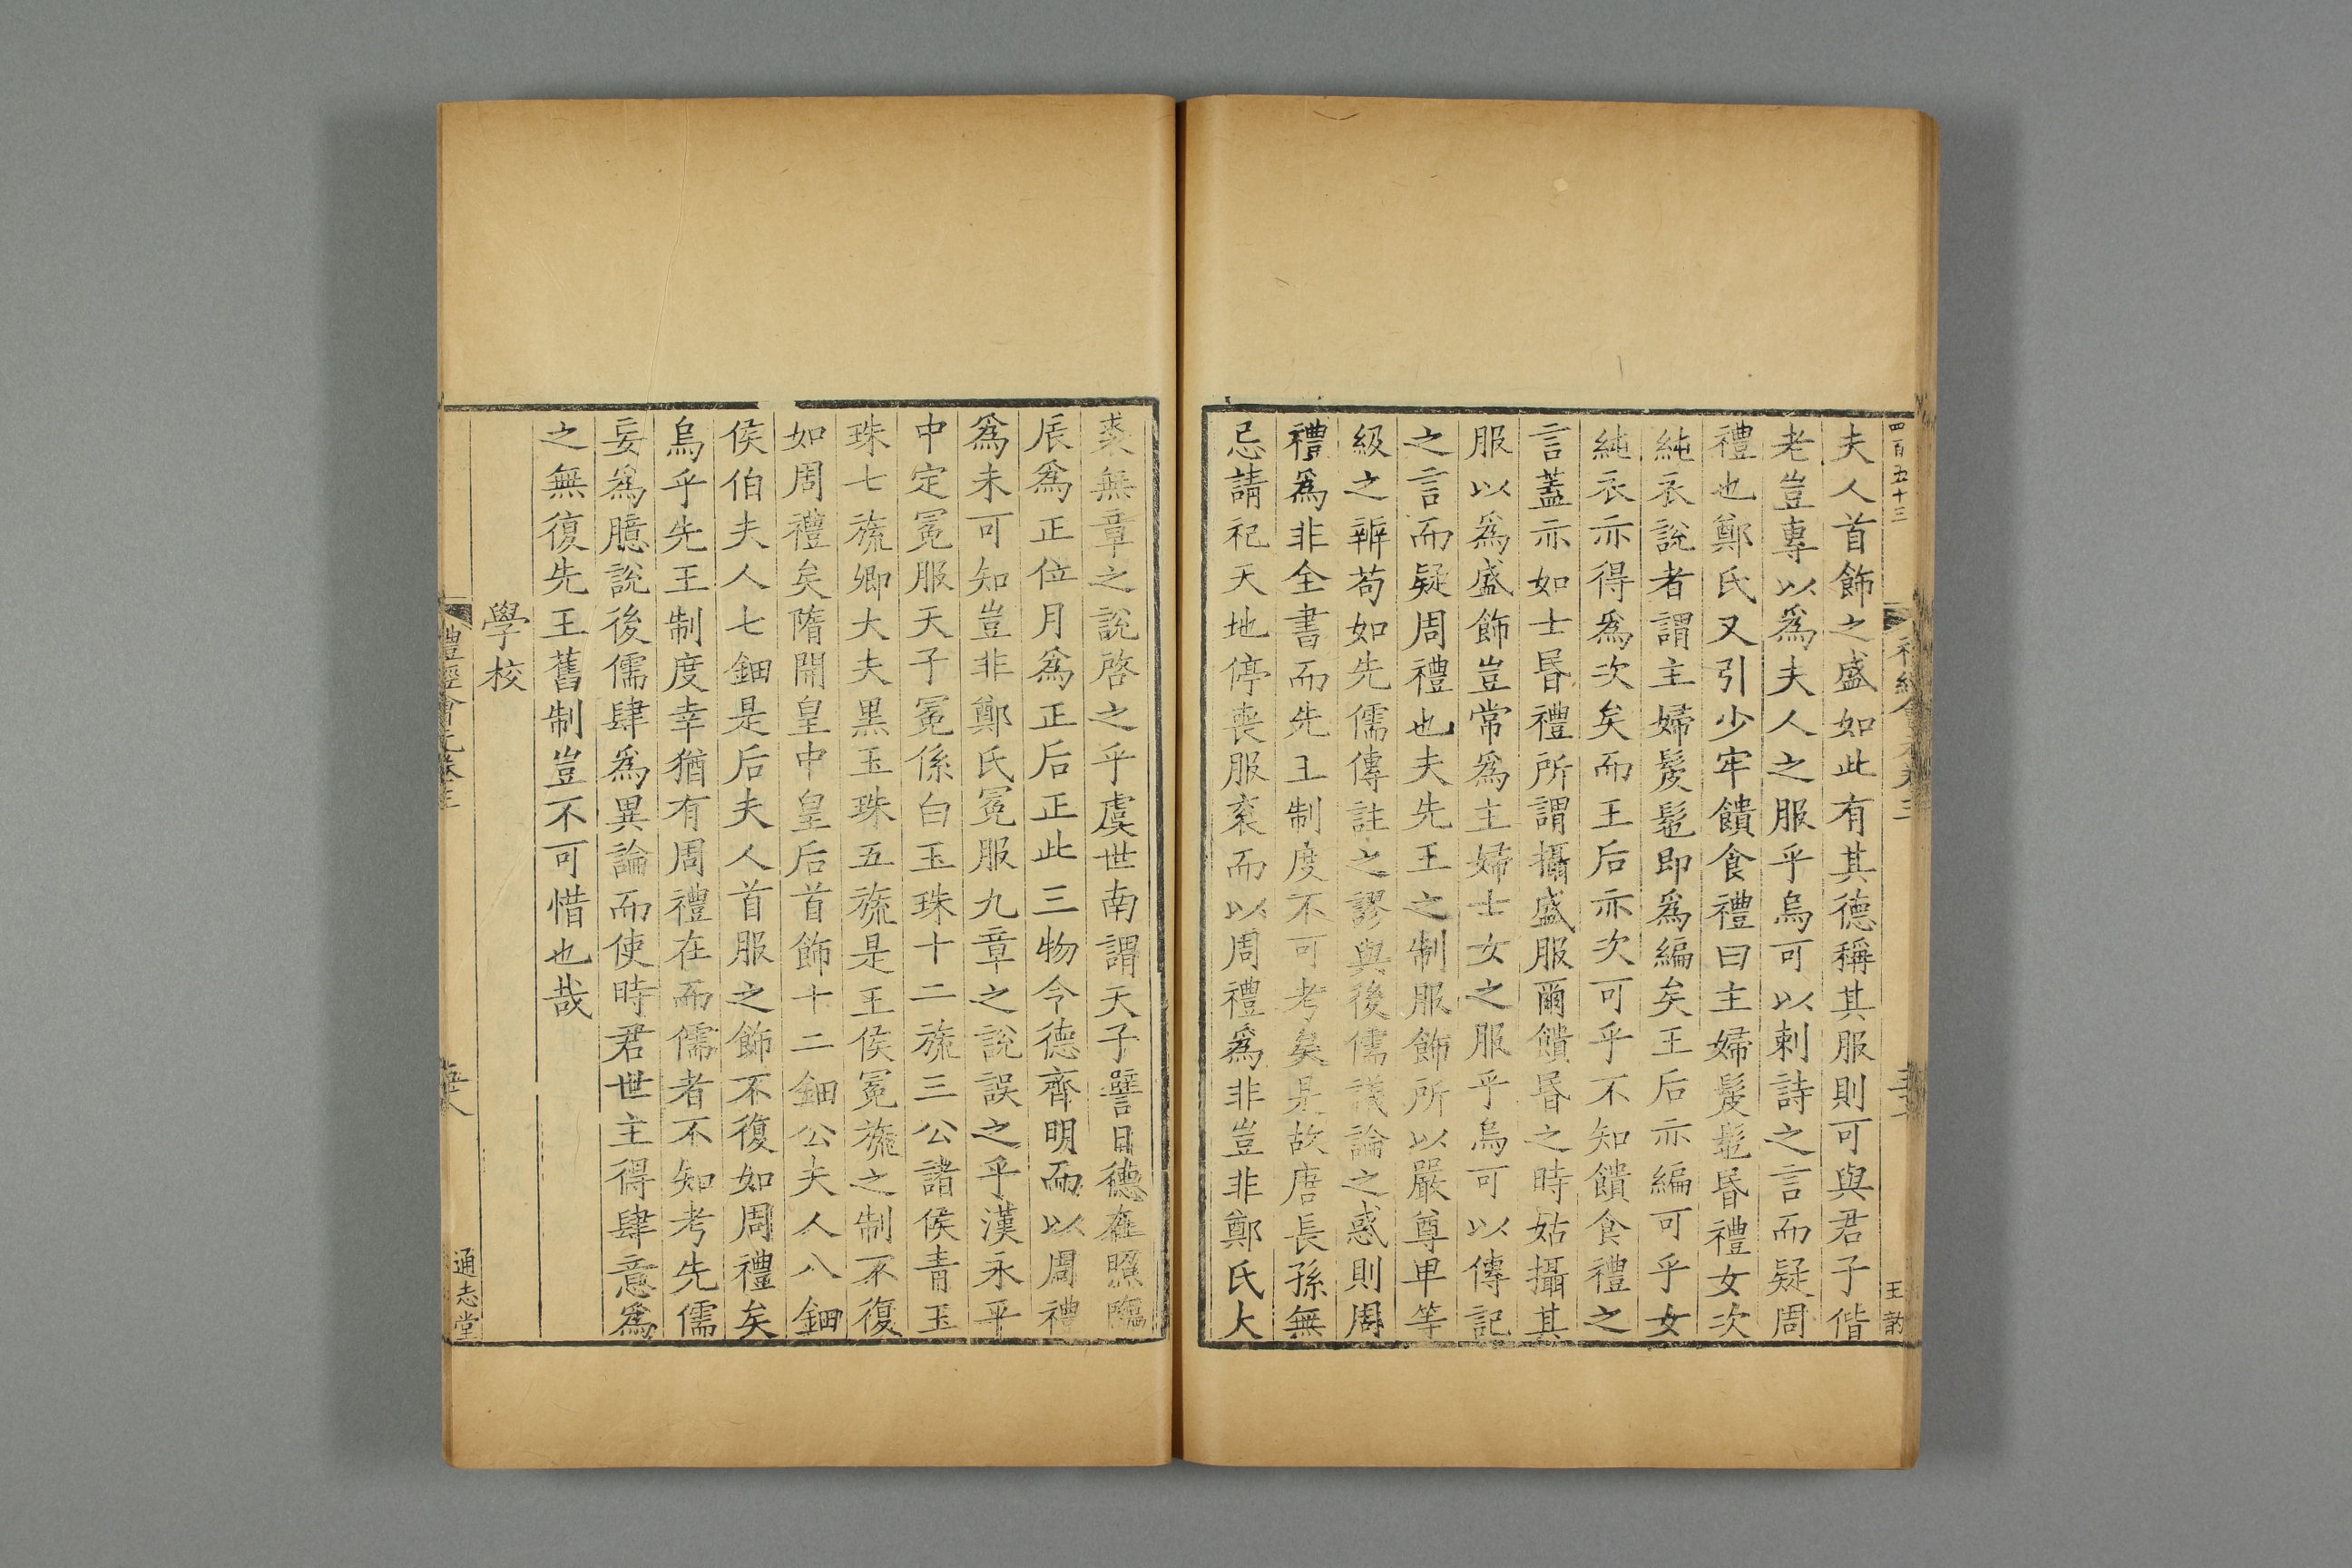 四百五十三
夫人首飾之盛如此有其德稱其服則可與君子偕
老豈專以爲夫人之服乎烏可以刺詩之言而疑周
禮也鄭氏又引少牢饋食禮曰主婦髲鬄昏禮女次
純衣說者謂主婦髲鬄即爲編矣王后亦編可乎女
純衣亦得爲次矣而王后亦次可乎不知饋食禮之
言蓋亦如士昏禮所謂攝盛服爾饋昏之時姑攝其
服以爲盛飾豈常爲主婦士女之服乎烏可以傳記
之言而疑周禮也夫先王之制服飾所以嚴尊卑等
級之辨苟如先儒傳註之謬與後儒議論之惑則周
禮爲非全書而先王制度不可考矣是故唐長孫無
忌請祀天地停喪服衮而以周禮爲非豈非鄭氏大
裘無章之說啓之乎虞世南謂天子譬日德在照臨
辰爲正位月爲正后正此三物令德齊明而以周禮
爲未可知豈非鄭氏冕服九章之說誤之乎漢永平
中定冕服天子冕係白玉珠十二旒三公諸侯青玉
珠七旒卿大夫黑玉珠五旒是王侯冕旒之制不復
如周禮矣隋開皇中皇后首飾十二鈿公夫人八鈿
侯伯夫人七鈿是后夫人首服之飾不復如周禮矣
烏乎先王制度幸猶有周禮在而儒者不知考先儒
妄爲臆說後儒肆爲異論而使時君世主得肆意爲
之無復先王舊制豈不可惜也哉
學校
禮經會元卷三
通志堂